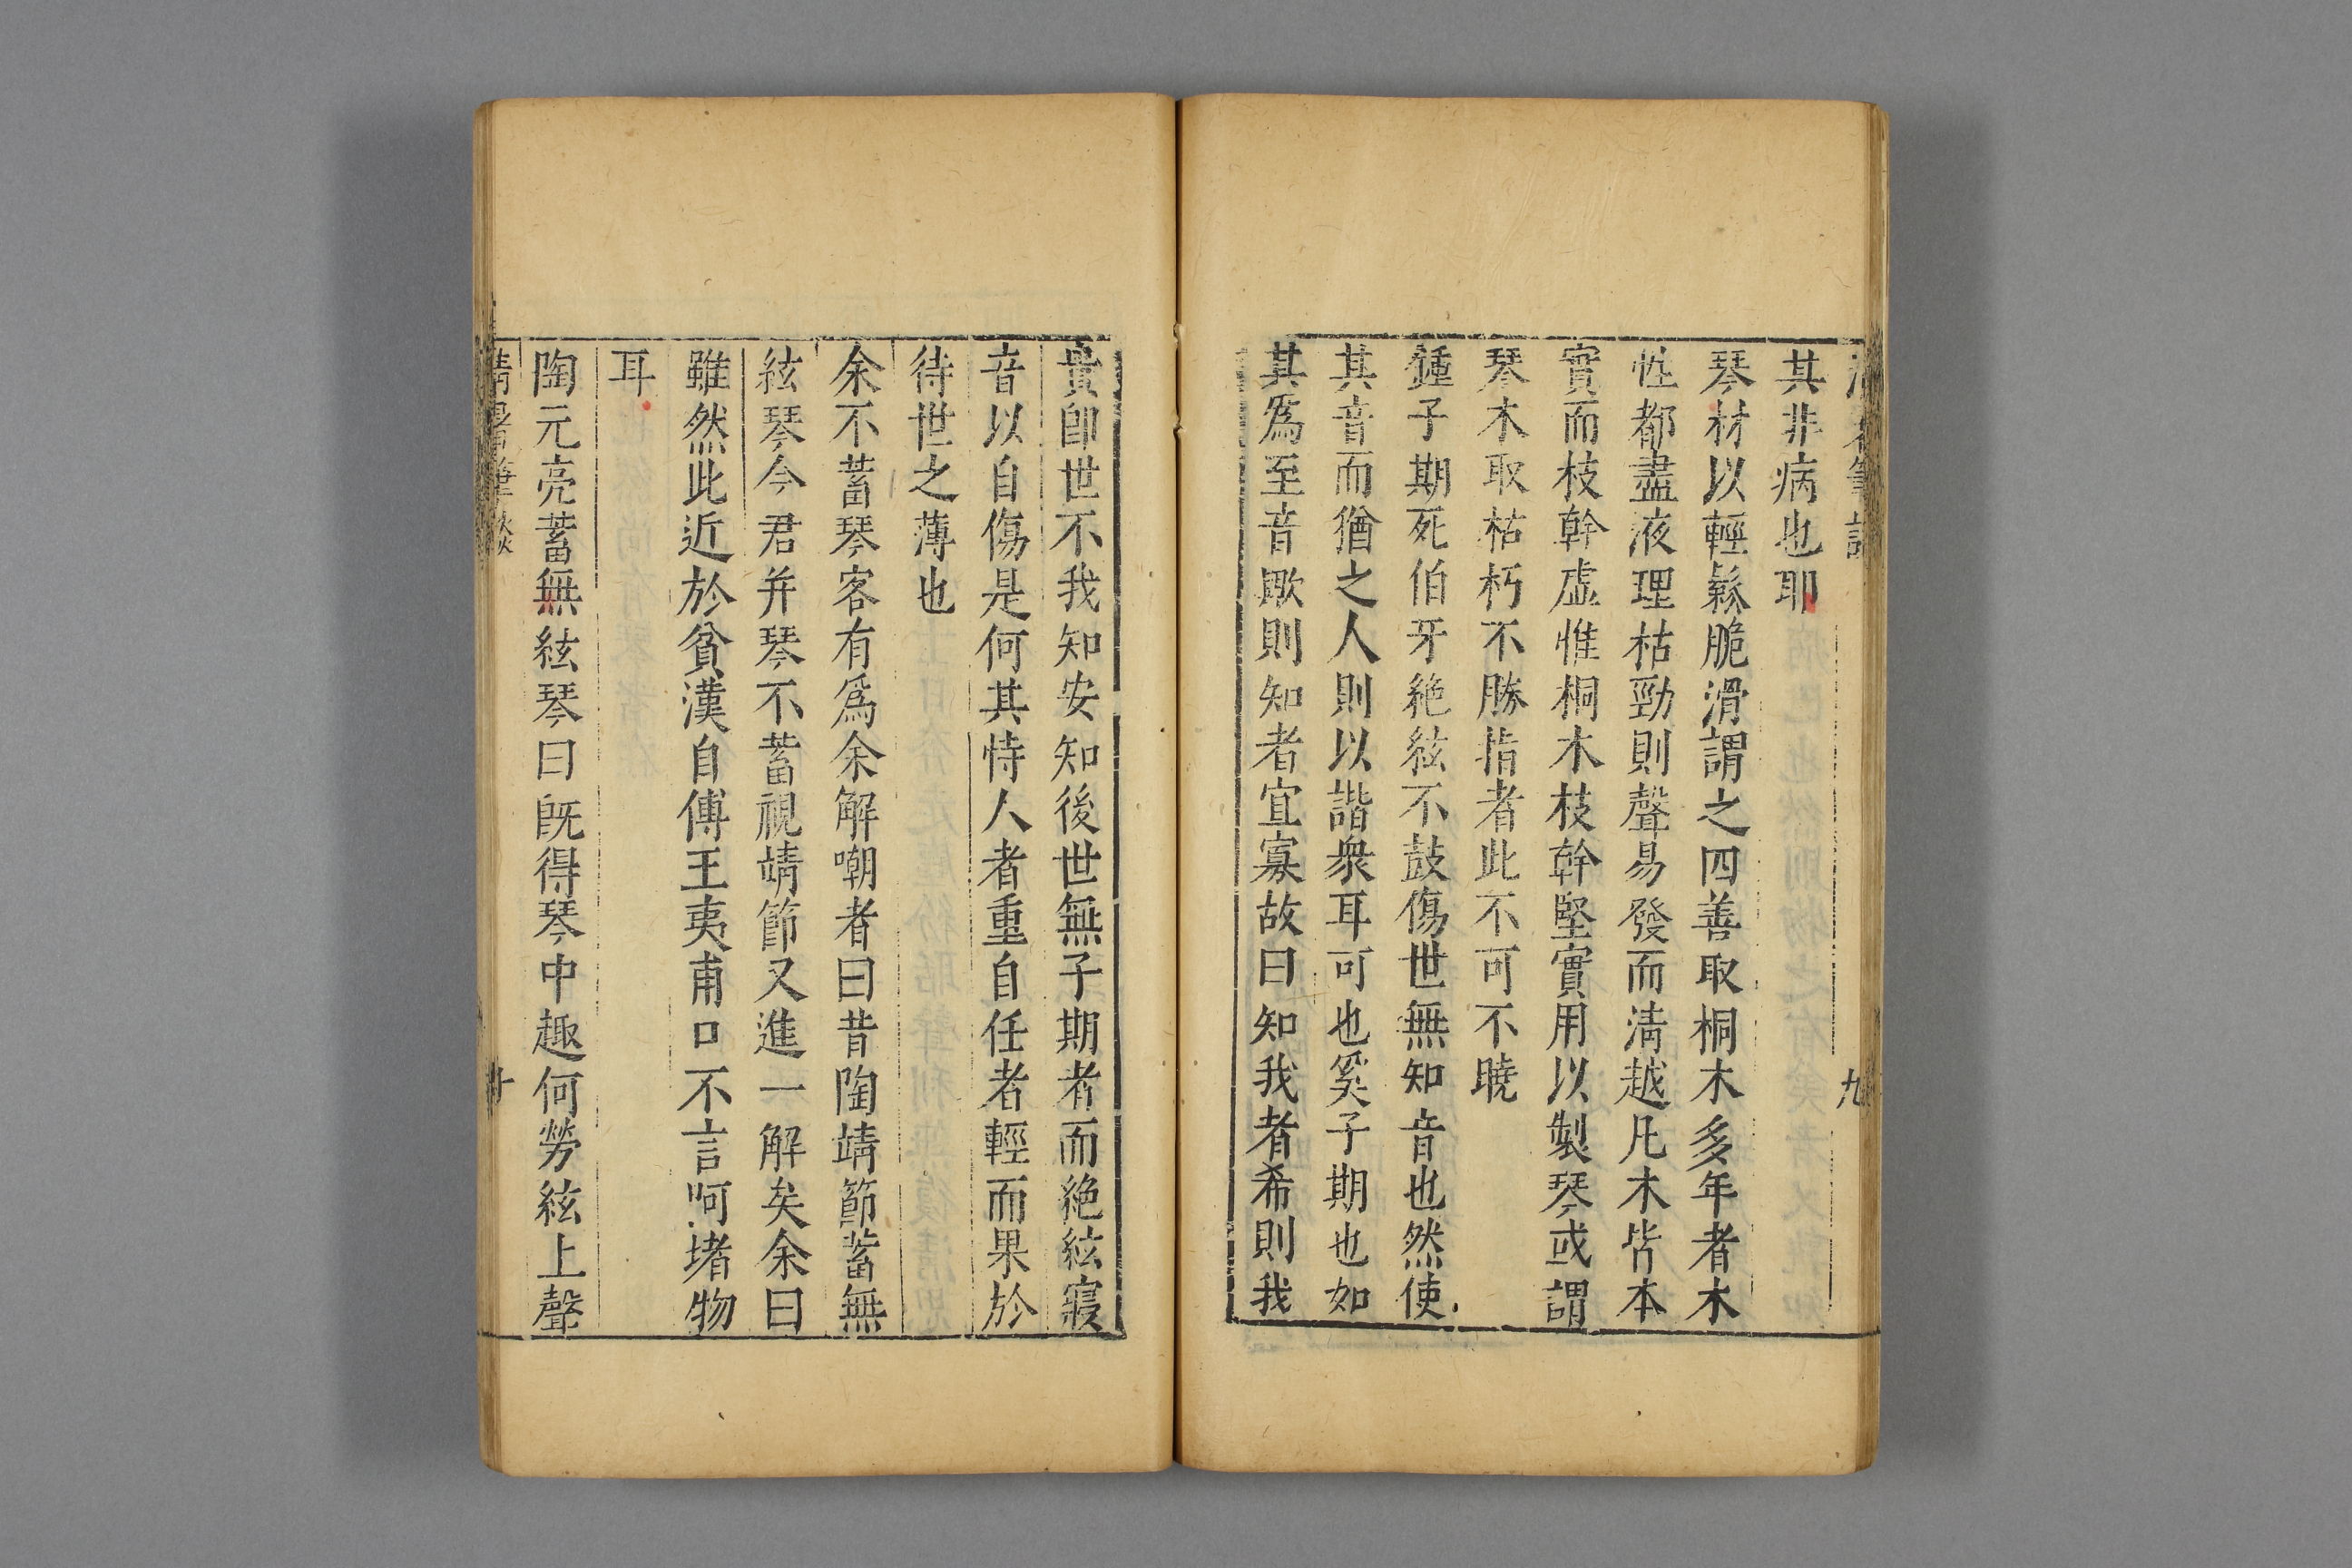 清暑筆談
九
其非病也耶
琴材以輕鬆脆滑謂之四善取桐木多年者木
性都盡液理枯勁則聲易發而清越凡木皆本
實而枝幹虛惟桐木枝幹堅實用以製琴或謂
琴木取枯朽不勝指者此不可不曉
鍾子期死伯牙絶絃不鼓傷世無知音也然使
其音而猶之人則以諧衆耳可也奚子期也如
其爲至音歟則知者宜寡故曰知我者希則我
貴卽世不我知安知後世無子期者而絶絃寢
音以自傷是何其恃人者重自任者輕而果於
待世之薄也
余不蓄琴客有爲余解嘲者曰昔陶靖節蓄無
絃琴今君并琴不蓄視靖節又進一解矣余曰
雖然此近於貧漢自傅王夷甫口不言呵堵物
耳
陶元亮蓄無絃琴曰旣得琴中趣何勞絃上聲
清暑筆談
十